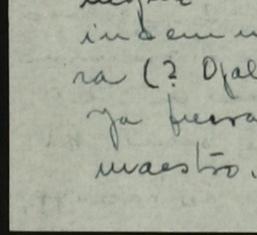 indem
ra (? Ojal
ya fuera
maestro.